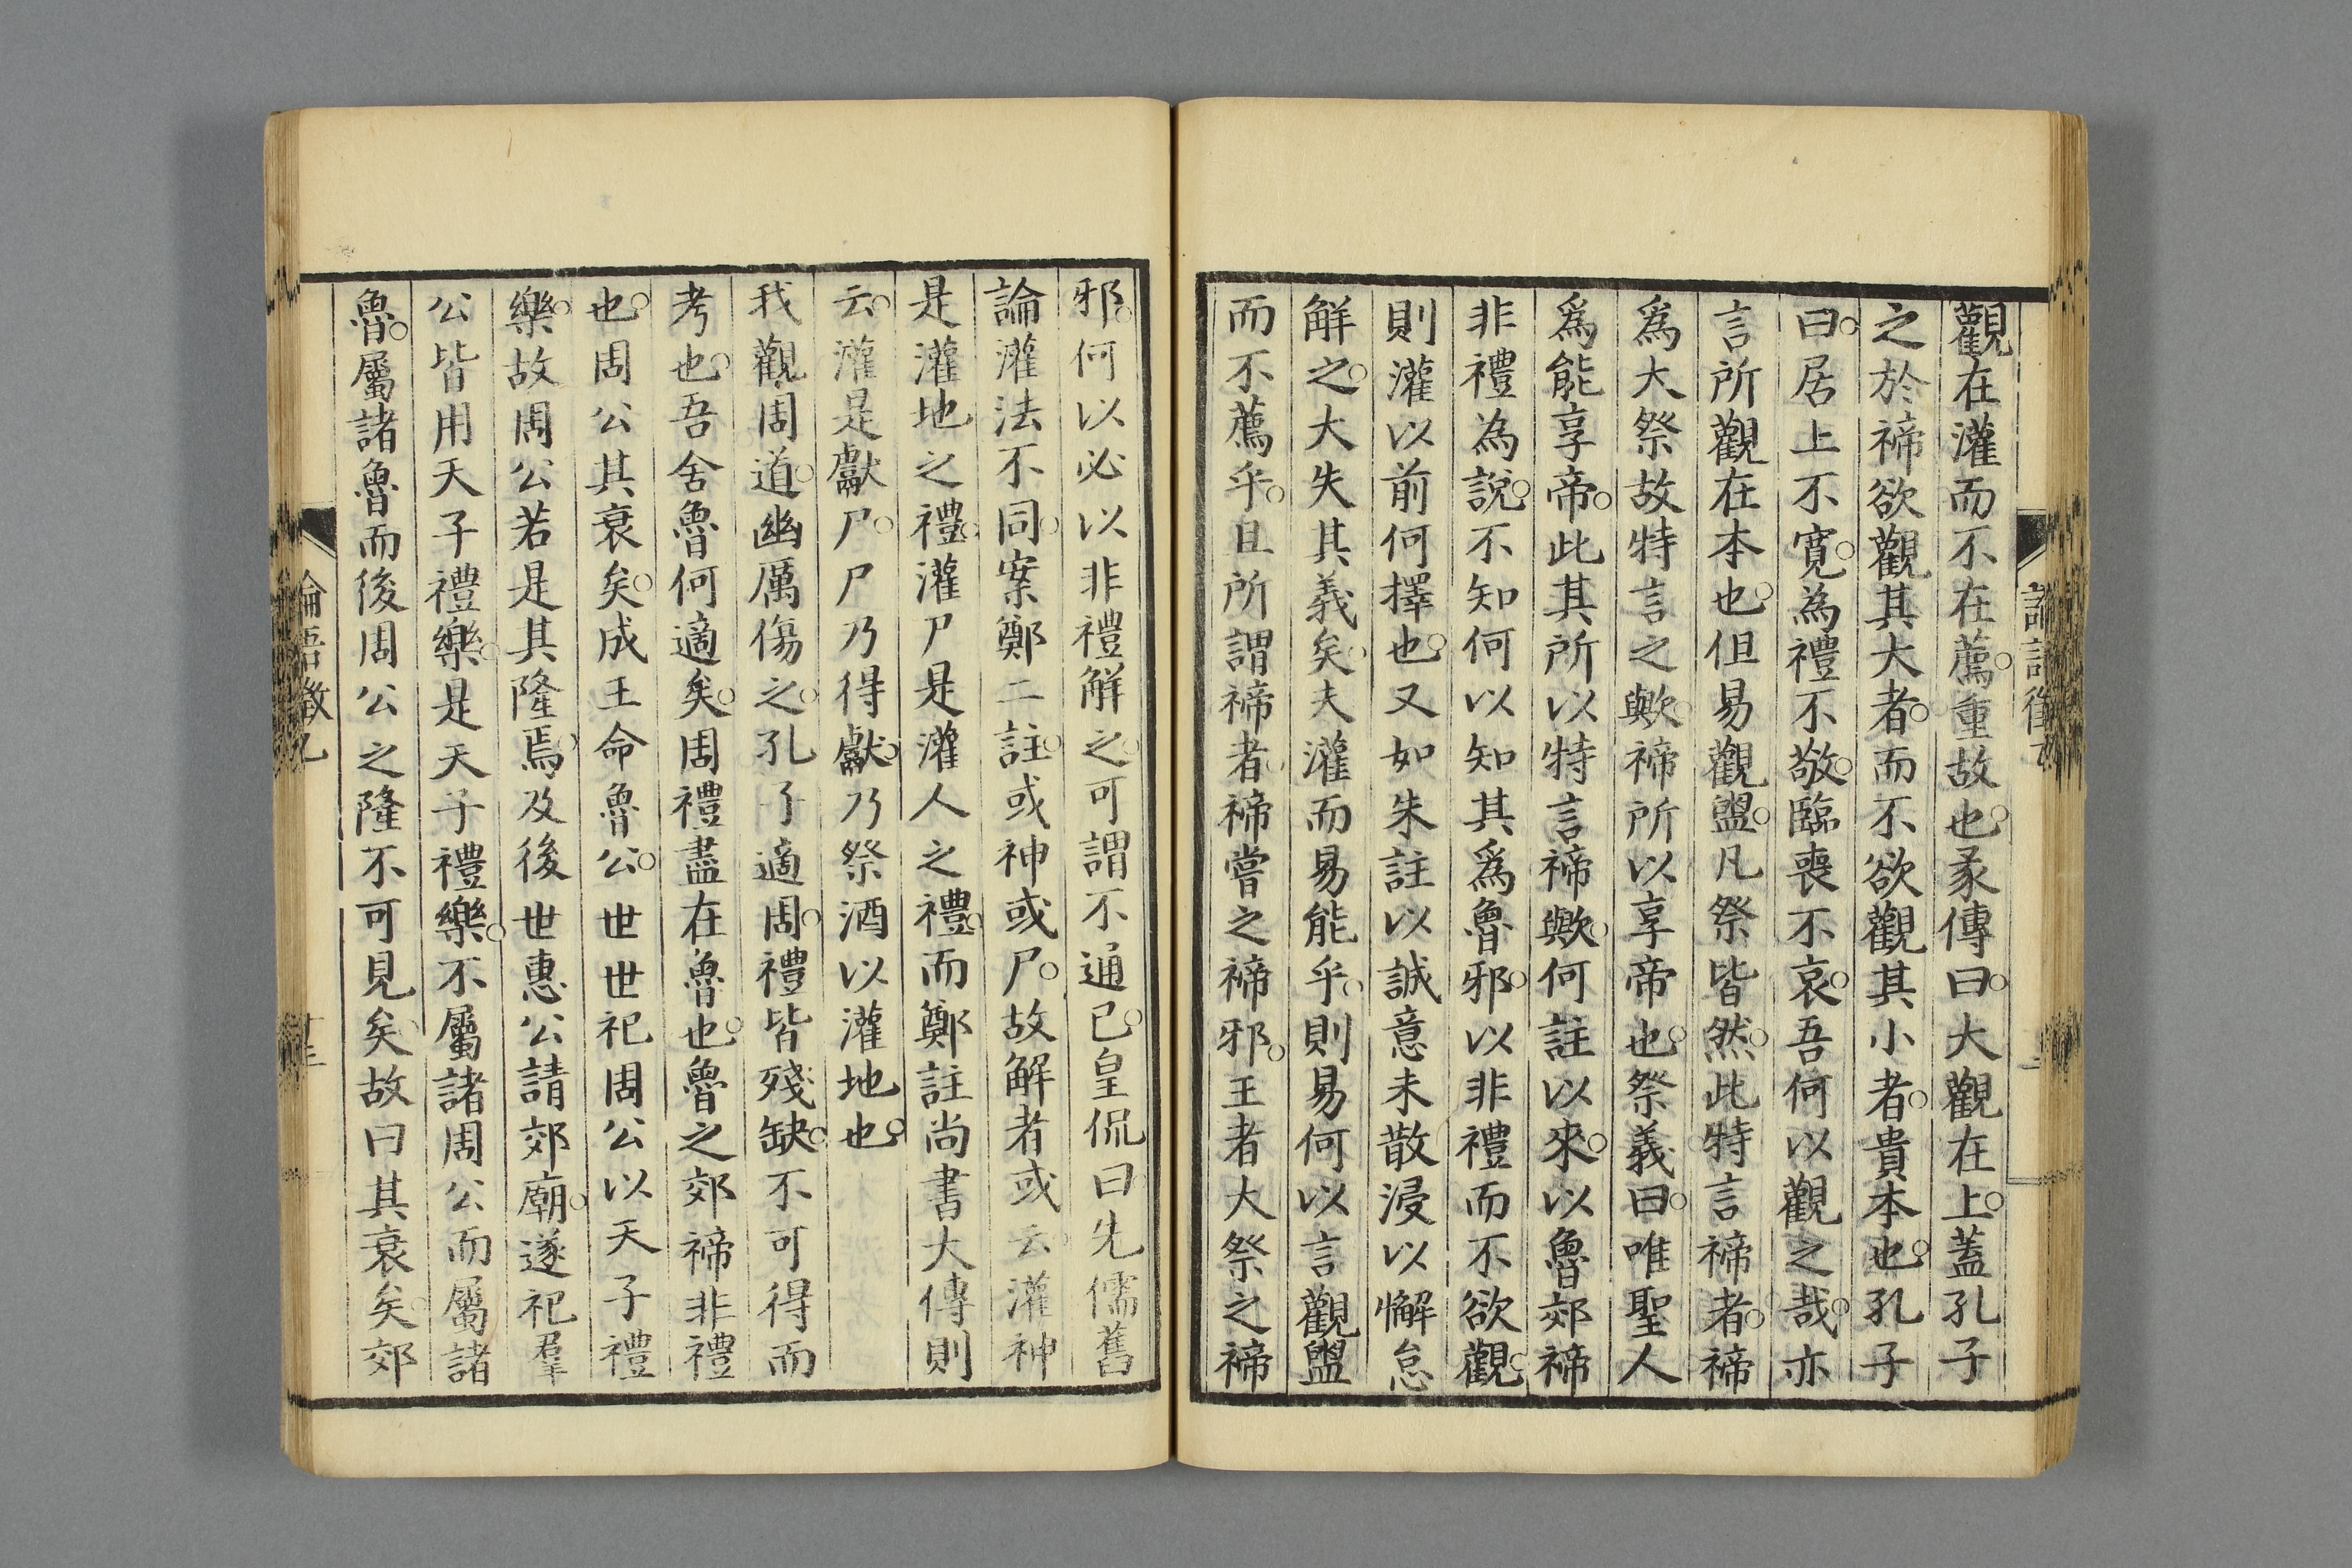 觀在灌而不在薦。重故也。彖傳曰。大觀在上。蓋孔子
之於禘欲觀其大者。而不欲觀其小者。貴本也。孔子
曰。居上不寬。為禮不敬。臨喪不哀。吾何以觀之哉。亦
言所觀在本也。但易觀盥。凡祭皆然。此特言禘者。禘
爲大祭故特言之歟。禘所以享帝也。祭義曰。唯聖人
爲能享帝。此其所以特言禘歟。何註以來。以魯郊禘
非禮為說。不知何以知其爲魯邪。以非禮而不欲觀。
則灌以前何擇也。又如朱註以誠意未散浸以懈怠
解之。大失其義矣。夫灌而易能乎。則易何以言觀盥
而不薦乎。且所謂禘者。禘嘗之禘邪。王者大祭之禘
邪。何以必以非禮解之。可謂不通已。皇侃曰。先儒舊
論灌法不同。案鄭二註。或神或尸。故解者或云。灌神
是灌地之禮。灌尸是灌人之禮。而鄭註尚書大傳則
云。灌是獻尸。尸乃得獻。乃祭酒以灌地也。
我觀周道。幽厲傷之。孔子適周。禮皆殘缺。不可得而
考也。吾舍魯何適矣。周禮盡在魯也。魯之郊禘非禮
也。周公其衰矣。成王命魯公。世世祀周公以天子禮
樂。故周公若是其隆焉。及後世惠公請郊廟。遂祀羣
公皆用天子禮樂。是天子禮樂。不屬諸周公而屬諸
魯。屬諸魯而後周公之隆不可見矣。故曰其衰矣。郊
論語徵乙